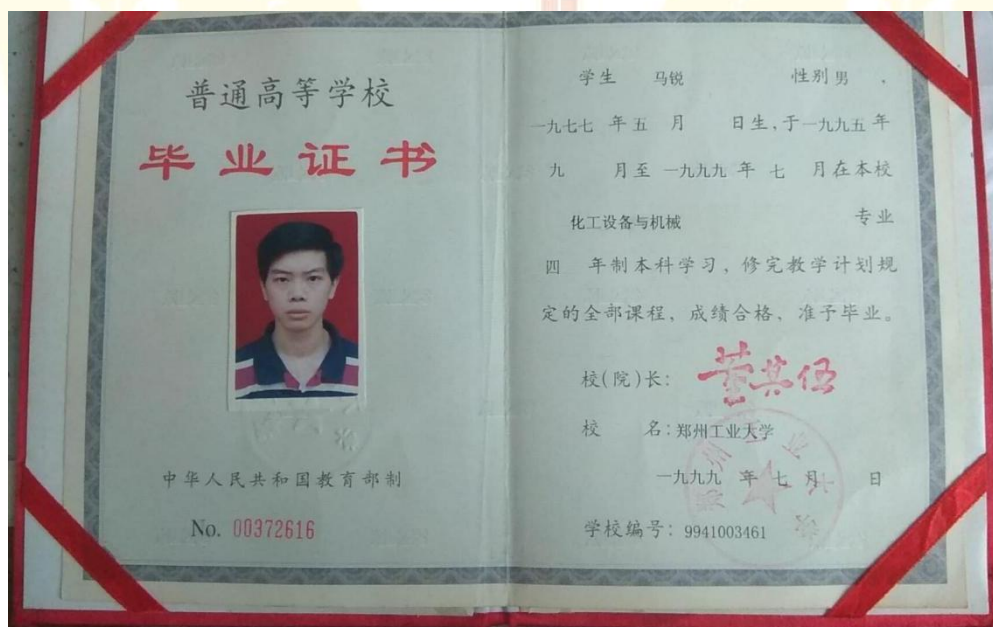 普通高等学校
毕业证书
中华人民共和国教育部制
No. 00372616
学生 马锐 性别 男 .
一九七七 年 五 月 日生,于一九九五 年
九 月至 一九九九 年 七 月在本校
化工设备与机械 专业
四 年制本科学习，修完教学计划规
定的全部课程，成绩合格，准予毕业。
校(院)长: 董其伍
校 名:郑州工业大学
一九九九 年 七 月 日
学校编号: 9941003461